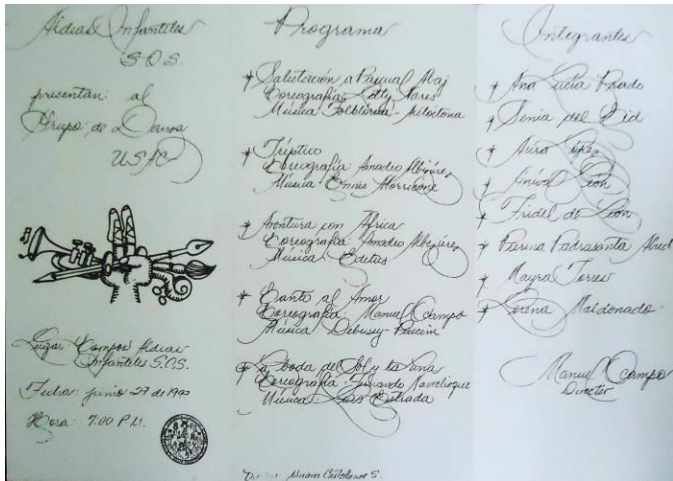 Aldeas Infantiles
S.O.S.
presentan al
Grupo de Danza
USAC
Lugar: Campos Aldeas
Infantiles S.O.S.
Fecha: junio 27 de
Hora: 7:00 P.M.
Programa
* Salutación a Pascual Abaj
Coreografía:
Música Folklórica
* Tríptico
Coreografía: Amadeo Albizúrez
Música: Ennio Morricone
* Aventura con Africa
Coreografía: Amadeo Albizúrez
Música:
* Canto al Amor
Coreografía: Manuel Ocampo
Música: Debussy
* La Boda del Sol y la Luna
Coreografía: Fernando
Música: Estrada
Miriam Castellanos S.
Integrantes
* Ana Lucía Prado
* Senia del Cid
* Aura López
* Aníval León
* Fridel de León
* Pierina Padrasanta
* Mayra Torres
* Lorena Maldonado
Manuel Ocampo
Director